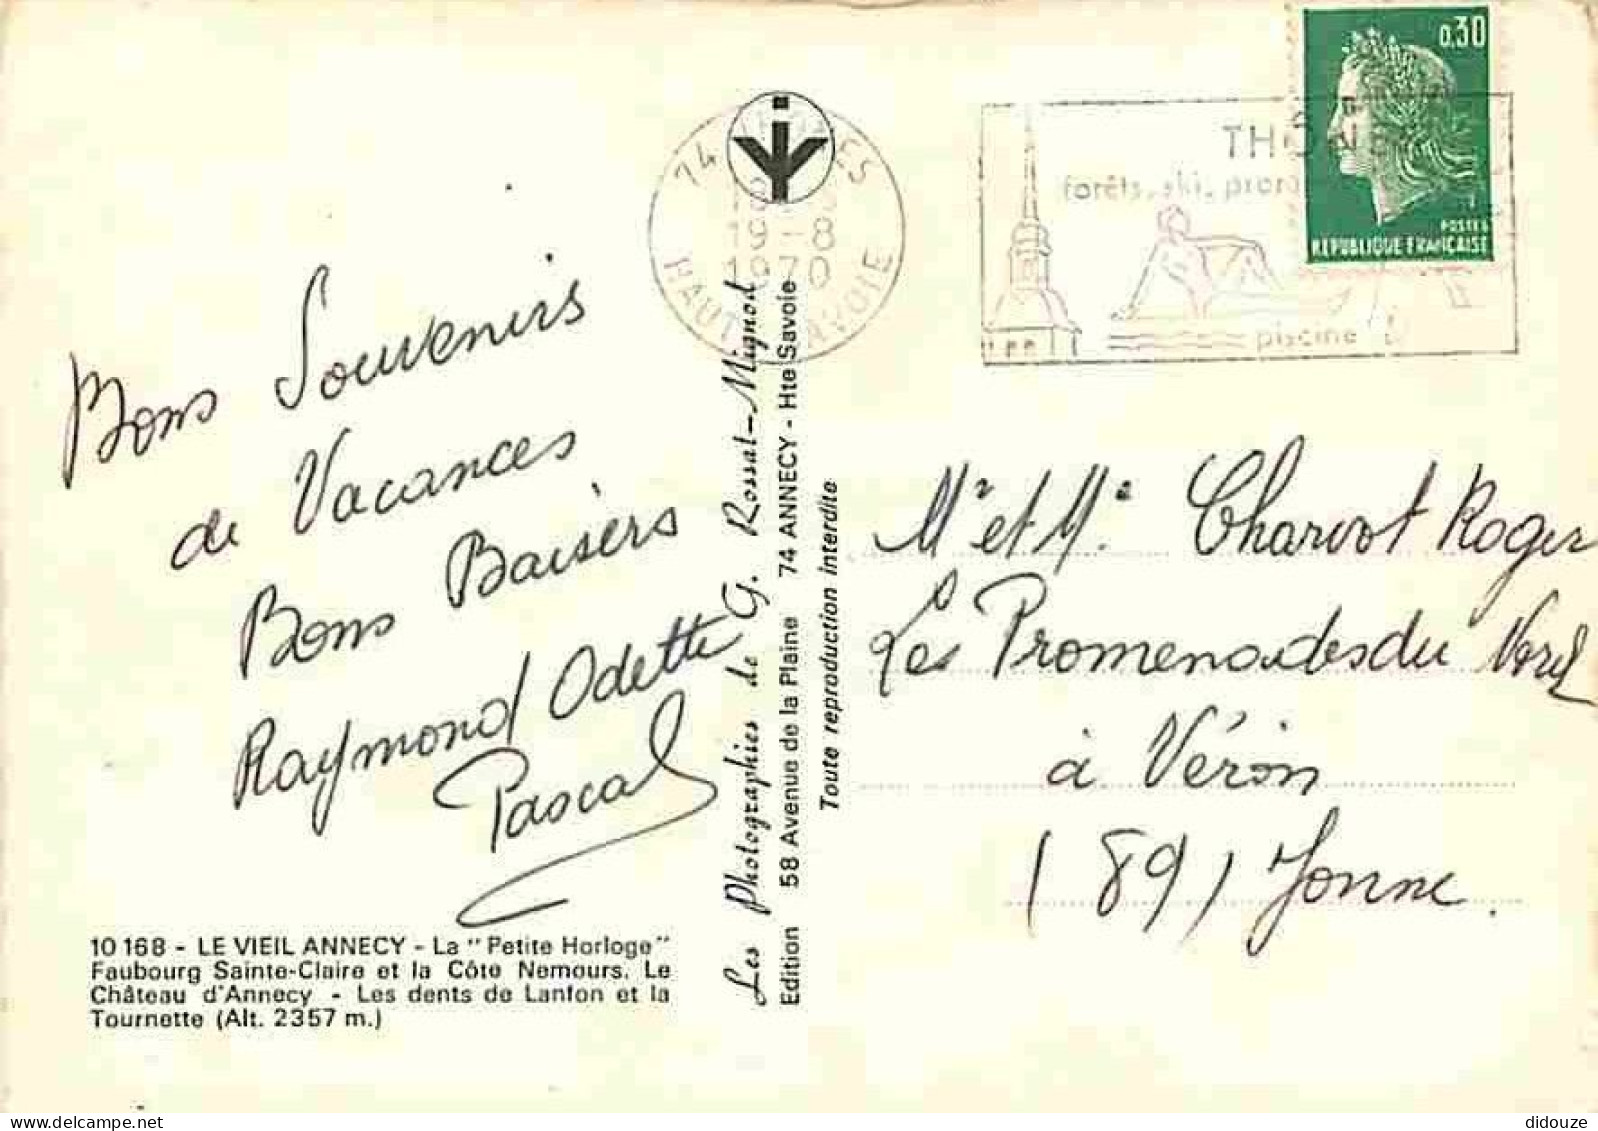 Bons Souvenirs
de Vacances
Bons Baisers
Raymond Odette
Pascal
10 168 - LE VIEIL ANNECY - La "Petite Horloge"
Faubourg Sainte-Claire et la Côte Nemours. Le
Château d'Annecy - Les dents de Lanfon et la
Tournette (Alt. 2357 m.)
Les Photographies de G. Rossat-Mignod
Edition 58 Avenue de la Plaine 74 ANNECY - Hte Savoie
Toute reproduction interdite
74
19 -8
1970
HAUTE SAVOIE
THÔNES
forêts, ski,
piscine
0,30
POSTES
REPUBLIQUE FRANCAISE
Mr et Me Charvot Roger
Les Promenades du
à Véron
(89) Yonne.
didouze